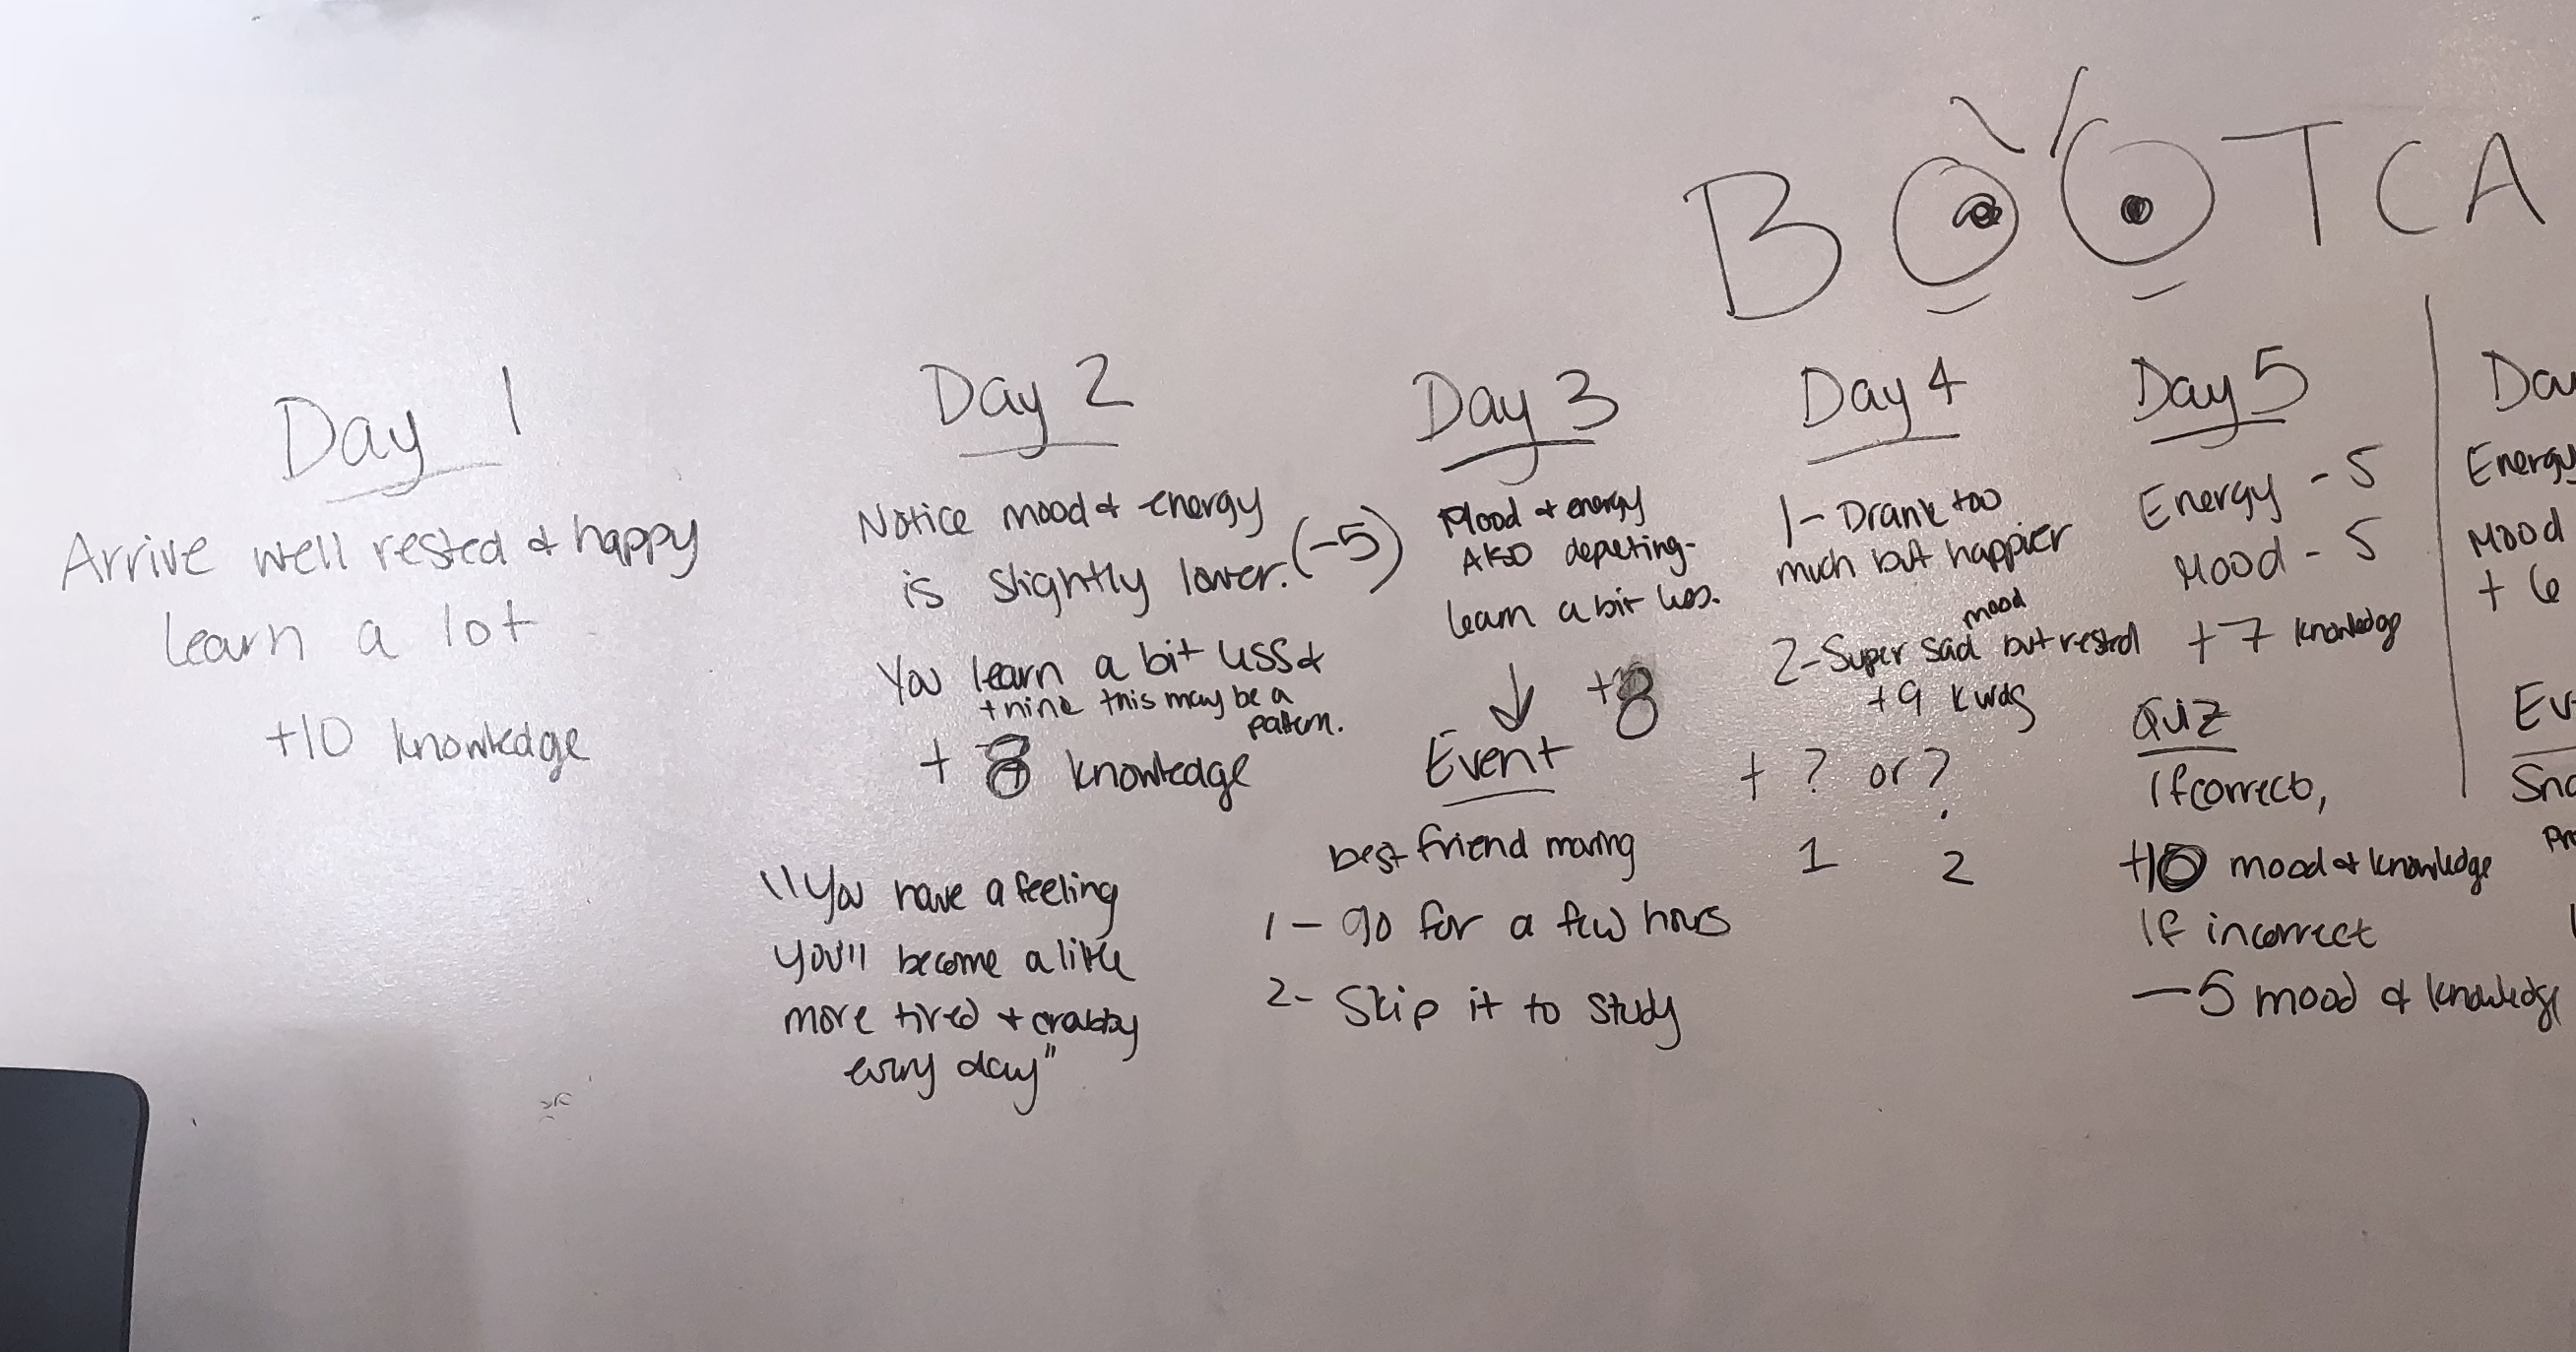 BOOTCA
Day 1
Arrive well rested & happy
learn a lot
+10 knowledge
Day 2
Notice mood & energy
is slightly lower. (-5)
You learn a bit less &
this may be a
pattern.
+ 8 knowledge
"You have a feeling
you'll become a little
more tired & crabby
every day"
Day 3
Mood & energy
Also depleting-
learn a bit less.
+8
Event
best friend moving
1 - go for a few hours
2 - Skip it to study
Day 4
1 - Drank too
much but happier
mood
2 - Super sad but rested
+9 kwdg
+ ? or ?
1 2
Day 5
Energy - 5
Mood - 5
+ 7 knowledge
Quiz
If correct,
+10 mood & knowledge
If incorrect
-5 mood & knowledge
Day
Energy
Mood
+ 6